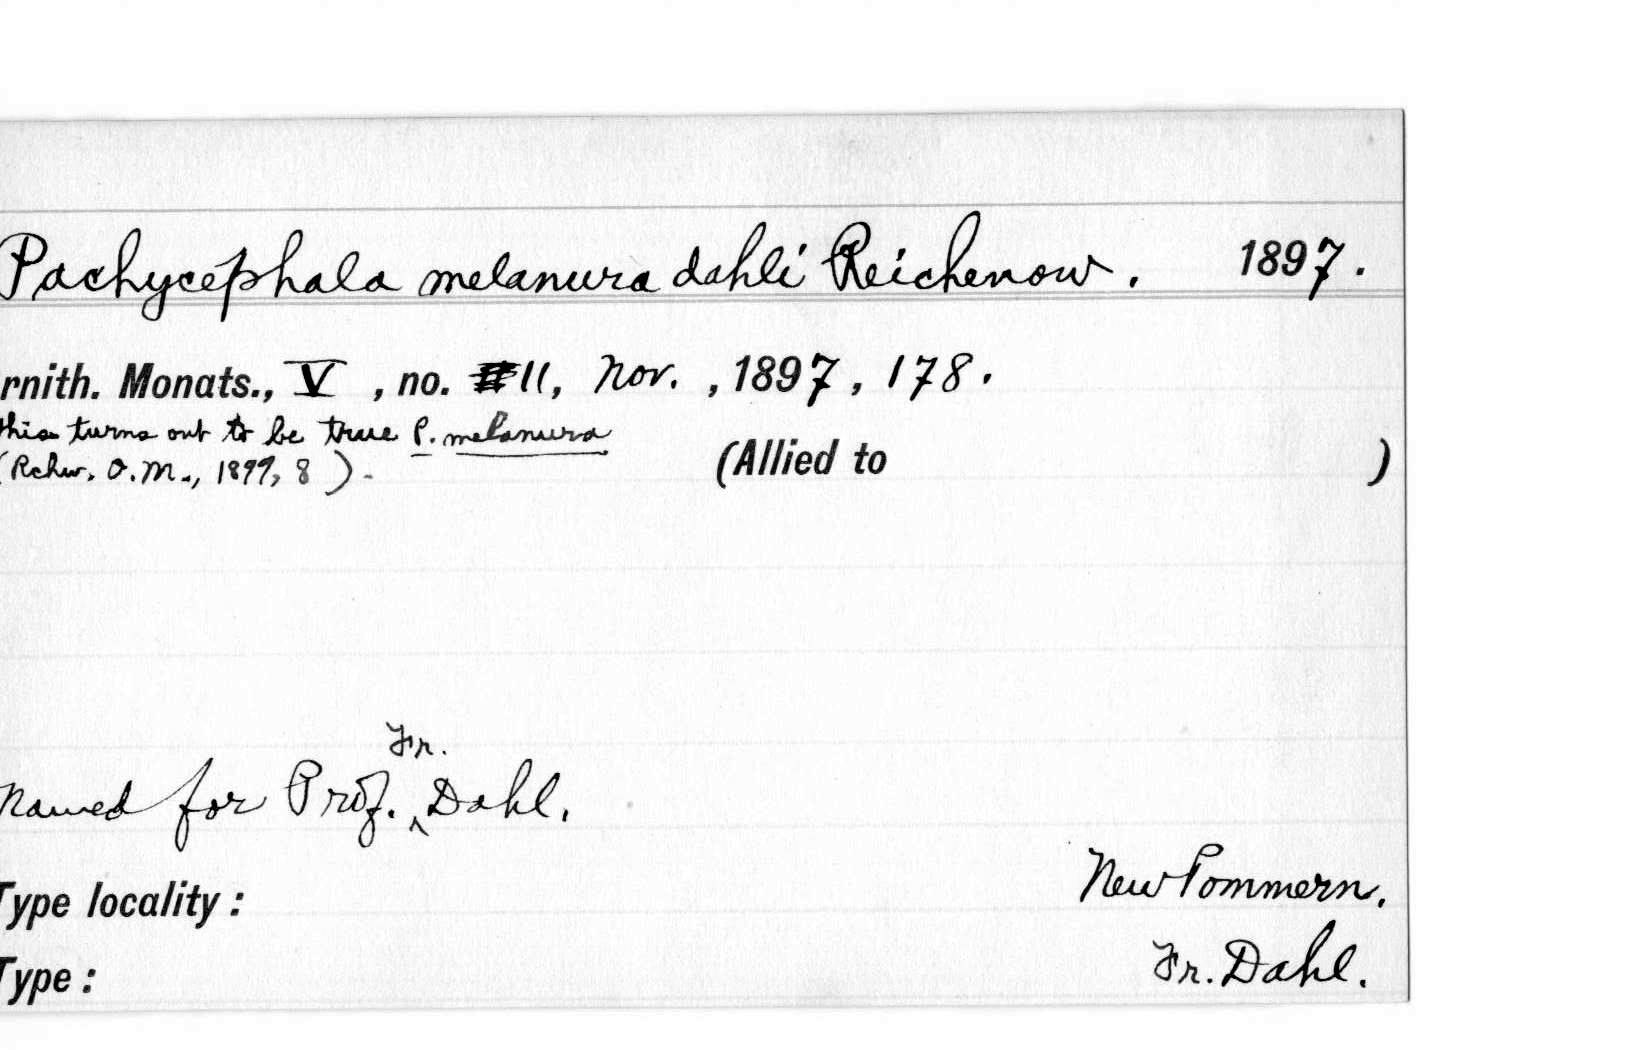 Pachycephala melanura dahli Reichenow. 1897.
rnith. Monats., V, no. 11, Nov., 1897, 178.
this turns out to be true P. melanura
(Rchw. O.M., 1899, 8).
(Allied to )
Fr.
Named for Prof. ^ Dahl.
Type locality: New Pommern.
Type: Fr. Dahl.